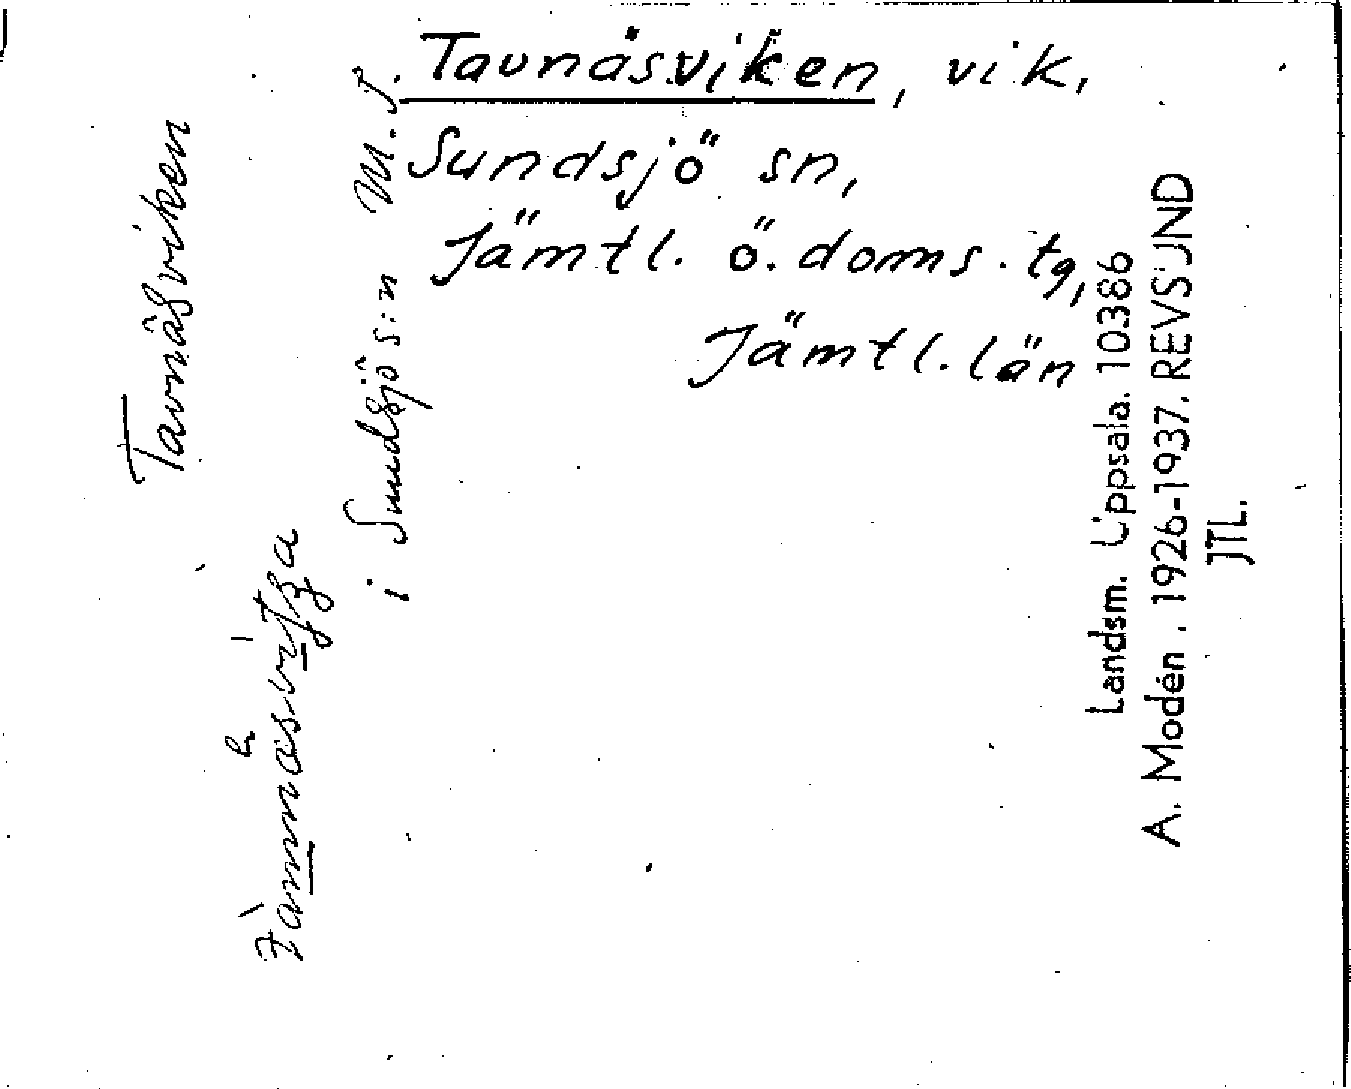 Taunäsviken, vik,
Sundsjö sn,
Jämtl. ö. doms. tg,
Jämtl. län
Tavnäsviken
i Sundsjö s:n
Landsm. Uppsala. 10386
A. Modén. 1926-1937. REVSUND
JTL.